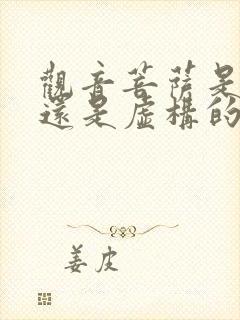 觀音菩薩是
還是虛構的
姜皮